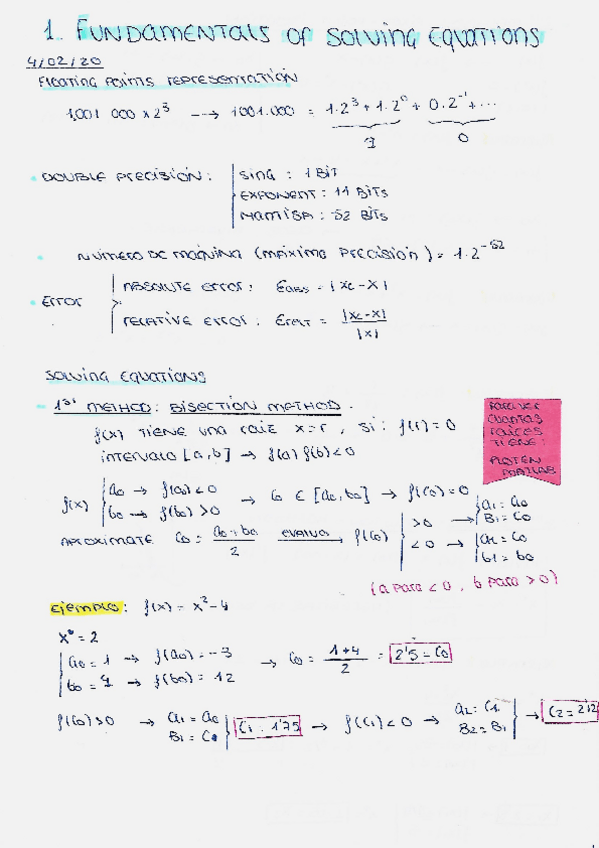 1. FUNDAMENTALS OF SOLVING EQUATIONS
4/02/20
FLOATING POINTS REPRESENTATION
1,001 000 x 2³ --→ 1001.000 = 1·2³ + 1·2⁰ + 0·2⁻¹ + ...
9 0
DOUBLE PRECISION: SING: 1 BIT
EXPONENT: 11 BITS
MANTISA: 52 BITS
NUMERO DE MAQUINA (MÁXIMA PRECISIÓN) = 1·2⁻⁵²
ERROR
ABSOLUTE ERROR: EABS = |Xc - X|
RELATIVE ERROR: = |Xc - X| / |X|
SOLVING EQUATIONS
1ST METHOD: BISECTION METHOD.
f(x) TIENE UNA RAIZ x=r, si: f(r) = 0
INTERVALO [a,b] → f(a) f(b) < 0
PARA VER
CUANTAS
RAICES
TIENE:
f(x) a₀ → f(a₀) < 0
b₀ → f(b₀) > 0
→ C₀ ∈ [a₀, b₀] → f(C₀) = 0
APROXIMATE C₀ = a₀ + b₀ / 2 → f(C₀)
> 0 → a₁ = a₀
B₁ = C₀
< 0 → a₁ = C₀
b₁ = b₀
(a para < 0, b para > 0)
EJEMPLO: f(x) = x² - 4
= 2
a₀ = 1 → f(a₀) = -3
→ f(b₀) = 12
→ C₀ = 1+4 / 2 = 2'5 = C₀
f(C₀) > 0 → a₁ = a₀
B₁ = C₀
C₁ = 1'75 → f(C₁) < 0 → a₂ = C₁
B₂ = B₁
→ C₂ = 2'12